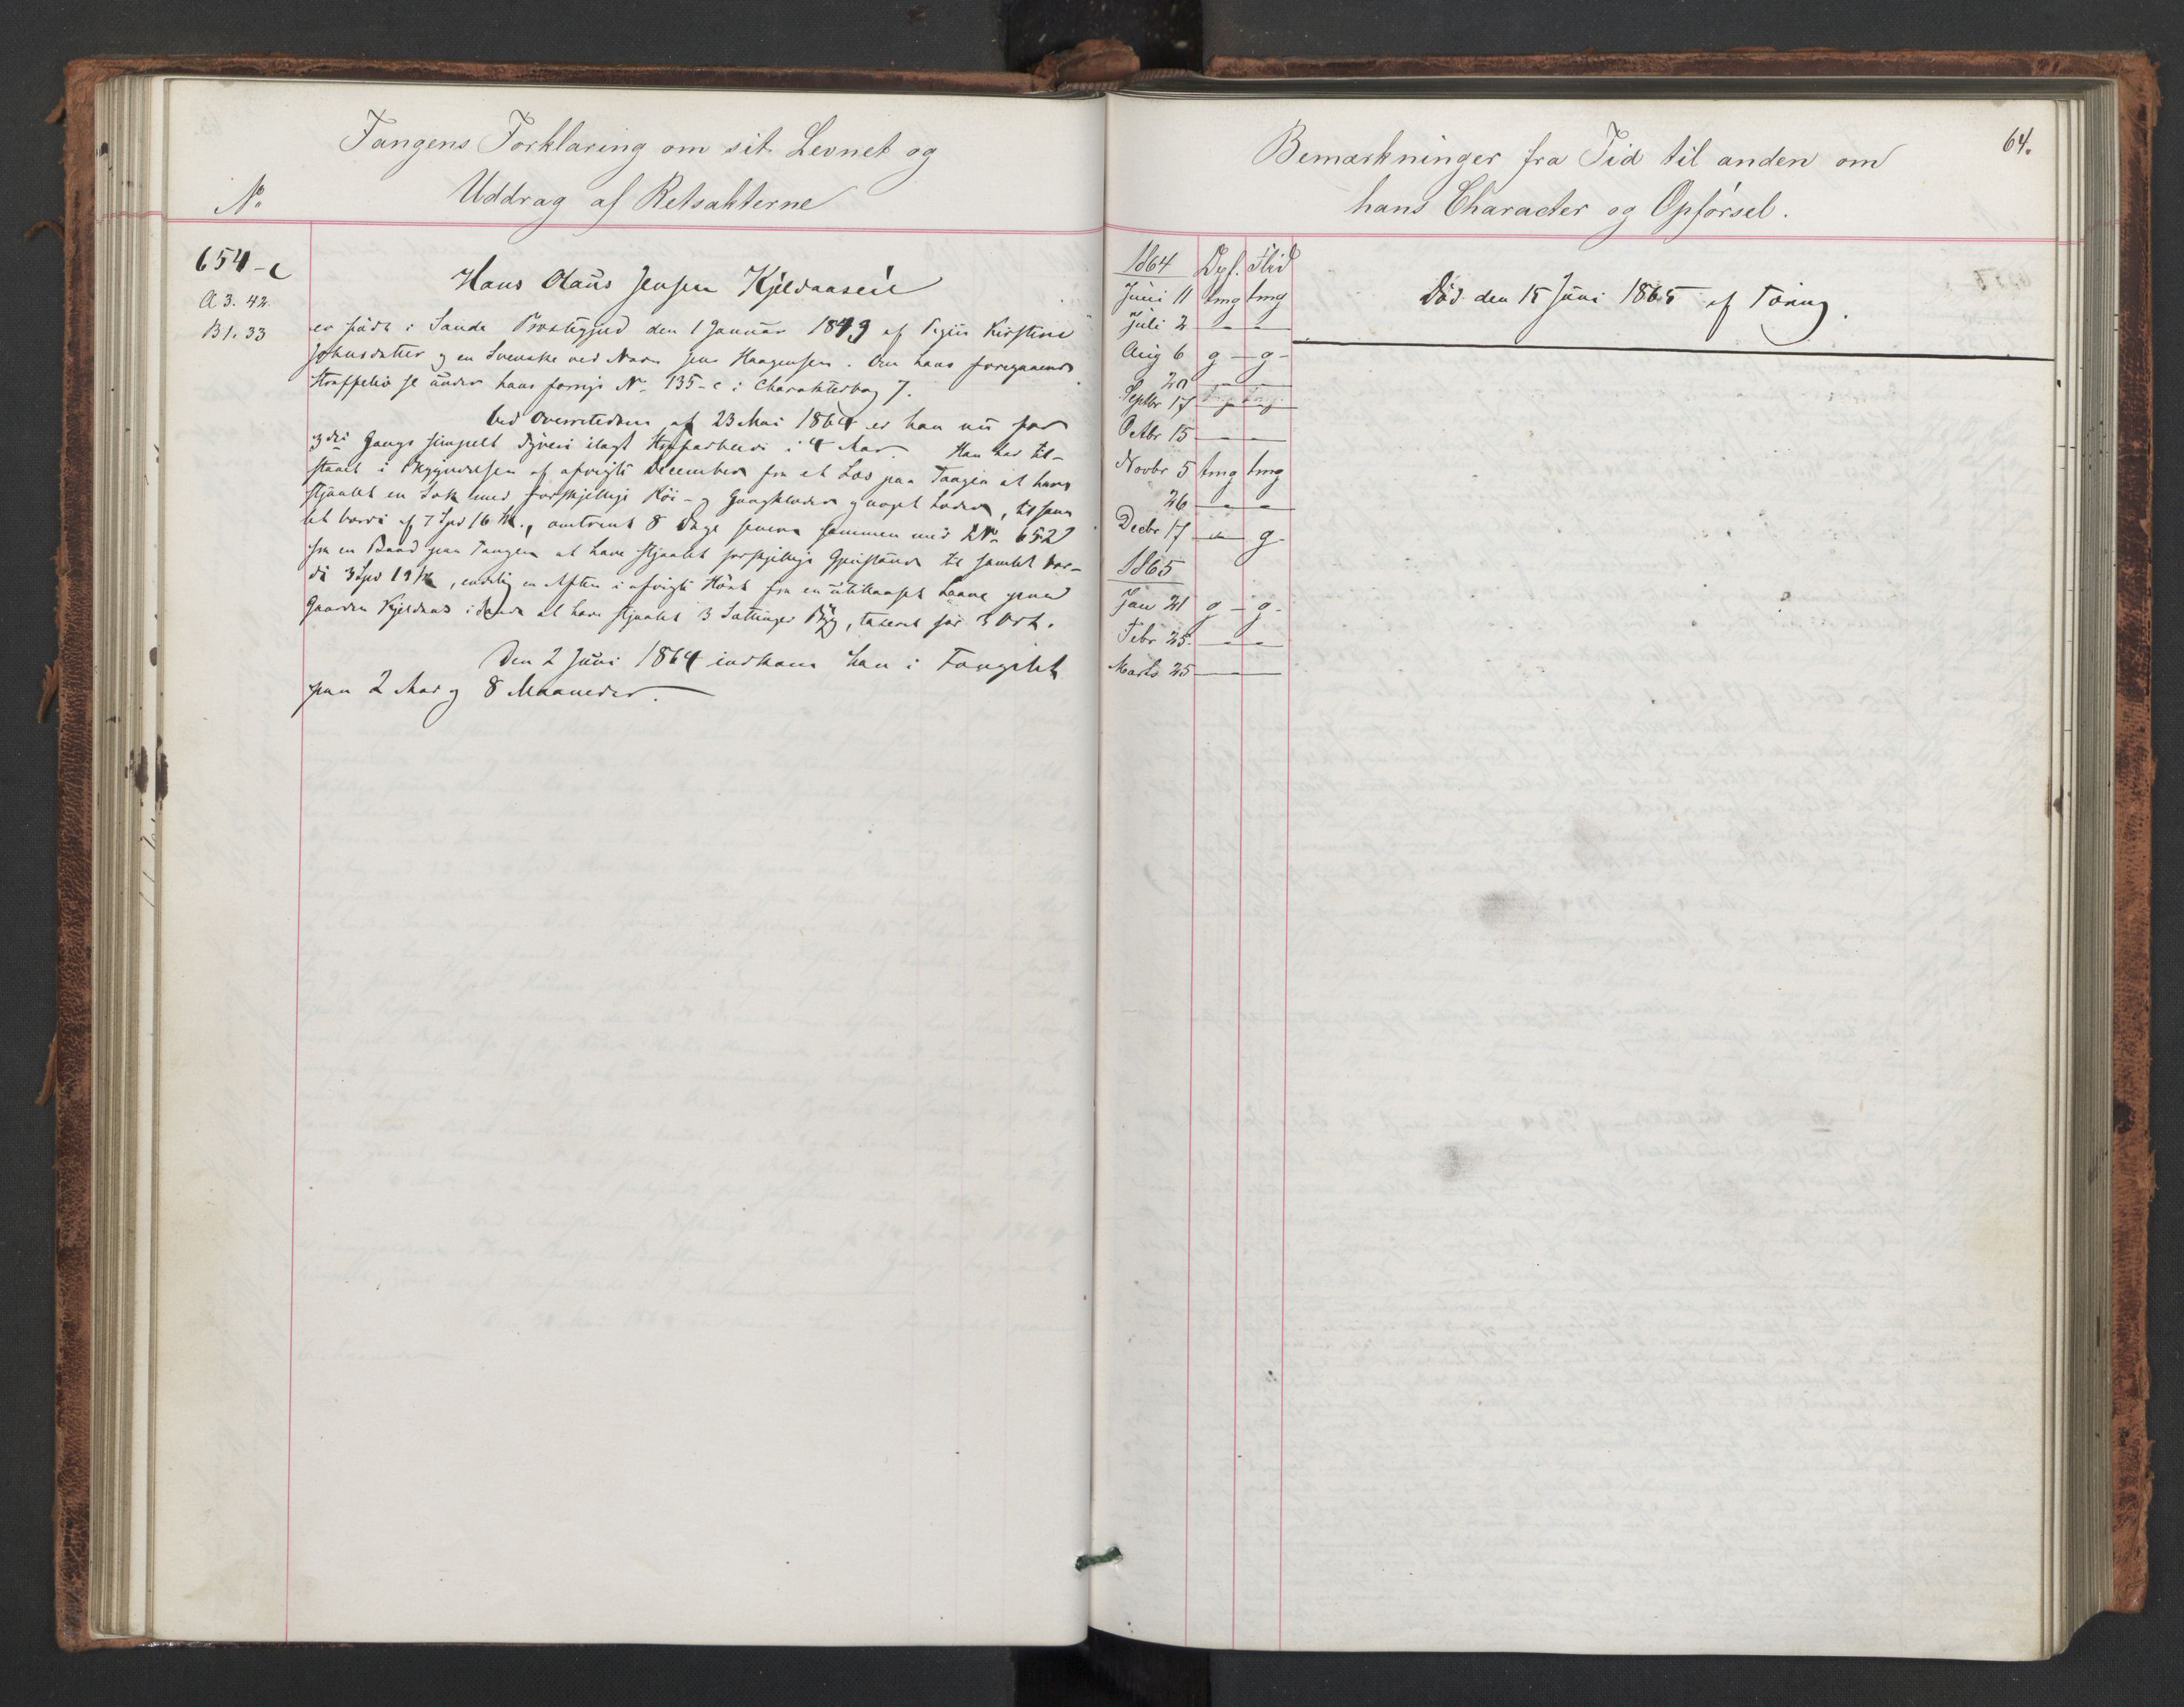 Fangens Forklaring om sit Levnet og
Uddrag af Retsakterne
No
654-c
A 3. 42.
B 1. 33
Hans Olaus Jensen Kjeldaasen
er född i Sande Præstegjeld den 1 Januar 1843 af Pigen Kirstine
Johnsdatter og en Svenske ved Navn Jens Haagensen. Om hans foregaaende
Straffeliv se under hans forrige No 135-c i Charakterbog 7.
Ved Overretsdom af 23 Mai 1864 er han nu for
3die Gangs simpelt Tyveri ilagt Strafarbeide i 4 Aar. Han har til-
staaet i Begyndelsen af afvigte December fra et Læs paa Tangen at have
stjaalet en Sæk med forskjellige Köi- og Gangklæder og noget Læder, til sam-
let Værdi af 7 Spd 16 sk., omtrent 8 Dage senere sammen med No 652
fra en Baad paa Tangen at have stjaalet forskjellige Gjenstande til samlet Vær-
di 3 Spd 19 sk, endelig en Aften i afvigte Höst fra en utillaaset Laave paa
Gaarden Kjeldaas i Sande at have stjaalet 3 Sættinger Byg, taxeret for 3 Ort.
Den 2 Juni 1864 indkom han i Fængslet
paa 2 Aar og 8 Maaneder.
64.
Bemærkninger fra Tid til anden om
hans Character og Opförsel.
1864 Opf. Flid
Juni 11 tmg tmg
Juli 2 - -
Aug 6 g - g -
20 - -
Septbr 17 - -
Octbr 15 - -
Novbr 5 tmg tmg
26 - -
Decbr 17 - g -
1865
Jan 21 g - g -
Febr 25 - -
Marts 25 - -
Död den 15 Juni 1865 af Tæring.